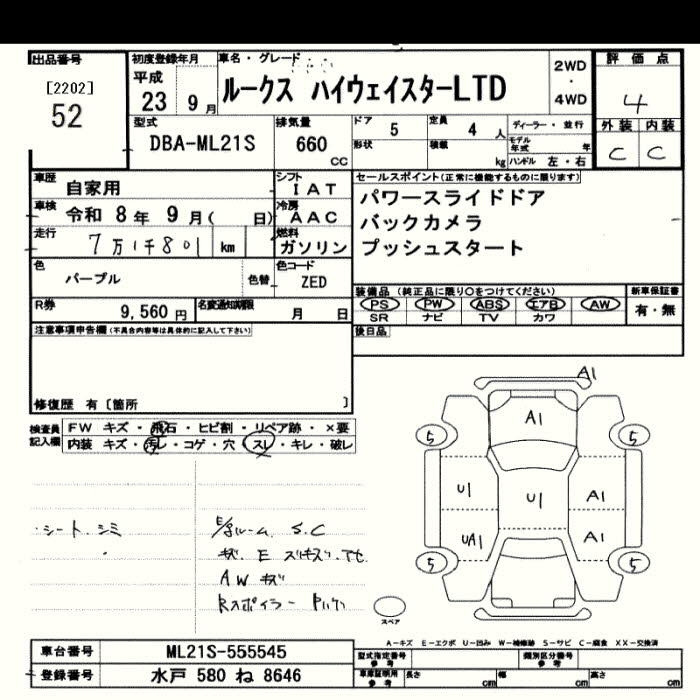 出品番号 初度登録年月 車名・グレード 評価点
[2202] 平成 2WD
52 23 9月 ルークス ハイウェイスターLTD ・ 4
4WD
型式 排気量 ドア 5 定員 4人 ディーラー・並行 外装 内装
DBA-ML21S 660 cc 形状 積載 kg モデル年式 年 C C
ハンドル 左・右
車歴 自家用 シフト IAT セールスポイント(正常に機能するものに限ります)
車検 令和 8年 9月( 日) 冷房 AAC パワースライドドア
走行 7万1千801 km 燃料 ガソリン バックカメラ
プッシュスタート
色 パープル 色替 色コード ZED
装備品 (純正品に限り○をつけてください) 新車保証書
R券 9,560円 名変通知期限 月 日 PS PW ABS エアB AW 有・無
SR ナビ TV カワ
注意事項申告欄(不具合内容等は具体的に記入して下さい) 後日品
修復歴 有 [箇所 ]
検査員記入欄 FW キズ・飛石・ヒビ割・リペア跡・×要
内装 キズ・汚レ・コゲ・穴・スレ・キレ・破レ
A1
A1
5 5
U1 U1 A1
UA1 A1
5 5
・シート シミ
E/gルーム S.C
キズ. E
AW キズ
Rスポイラー
スペア
A-キズ E-エクボ U-凹み W-補修跡 S-サビ C-腐食 XX-交換済
車台番号 ML21S-555545 型式指定番号 参考 類別区分番号 参考
登録番号 水戸 580 ね 8646 車庫証明用 参考 長さ cm 幅 cm 高さ cm